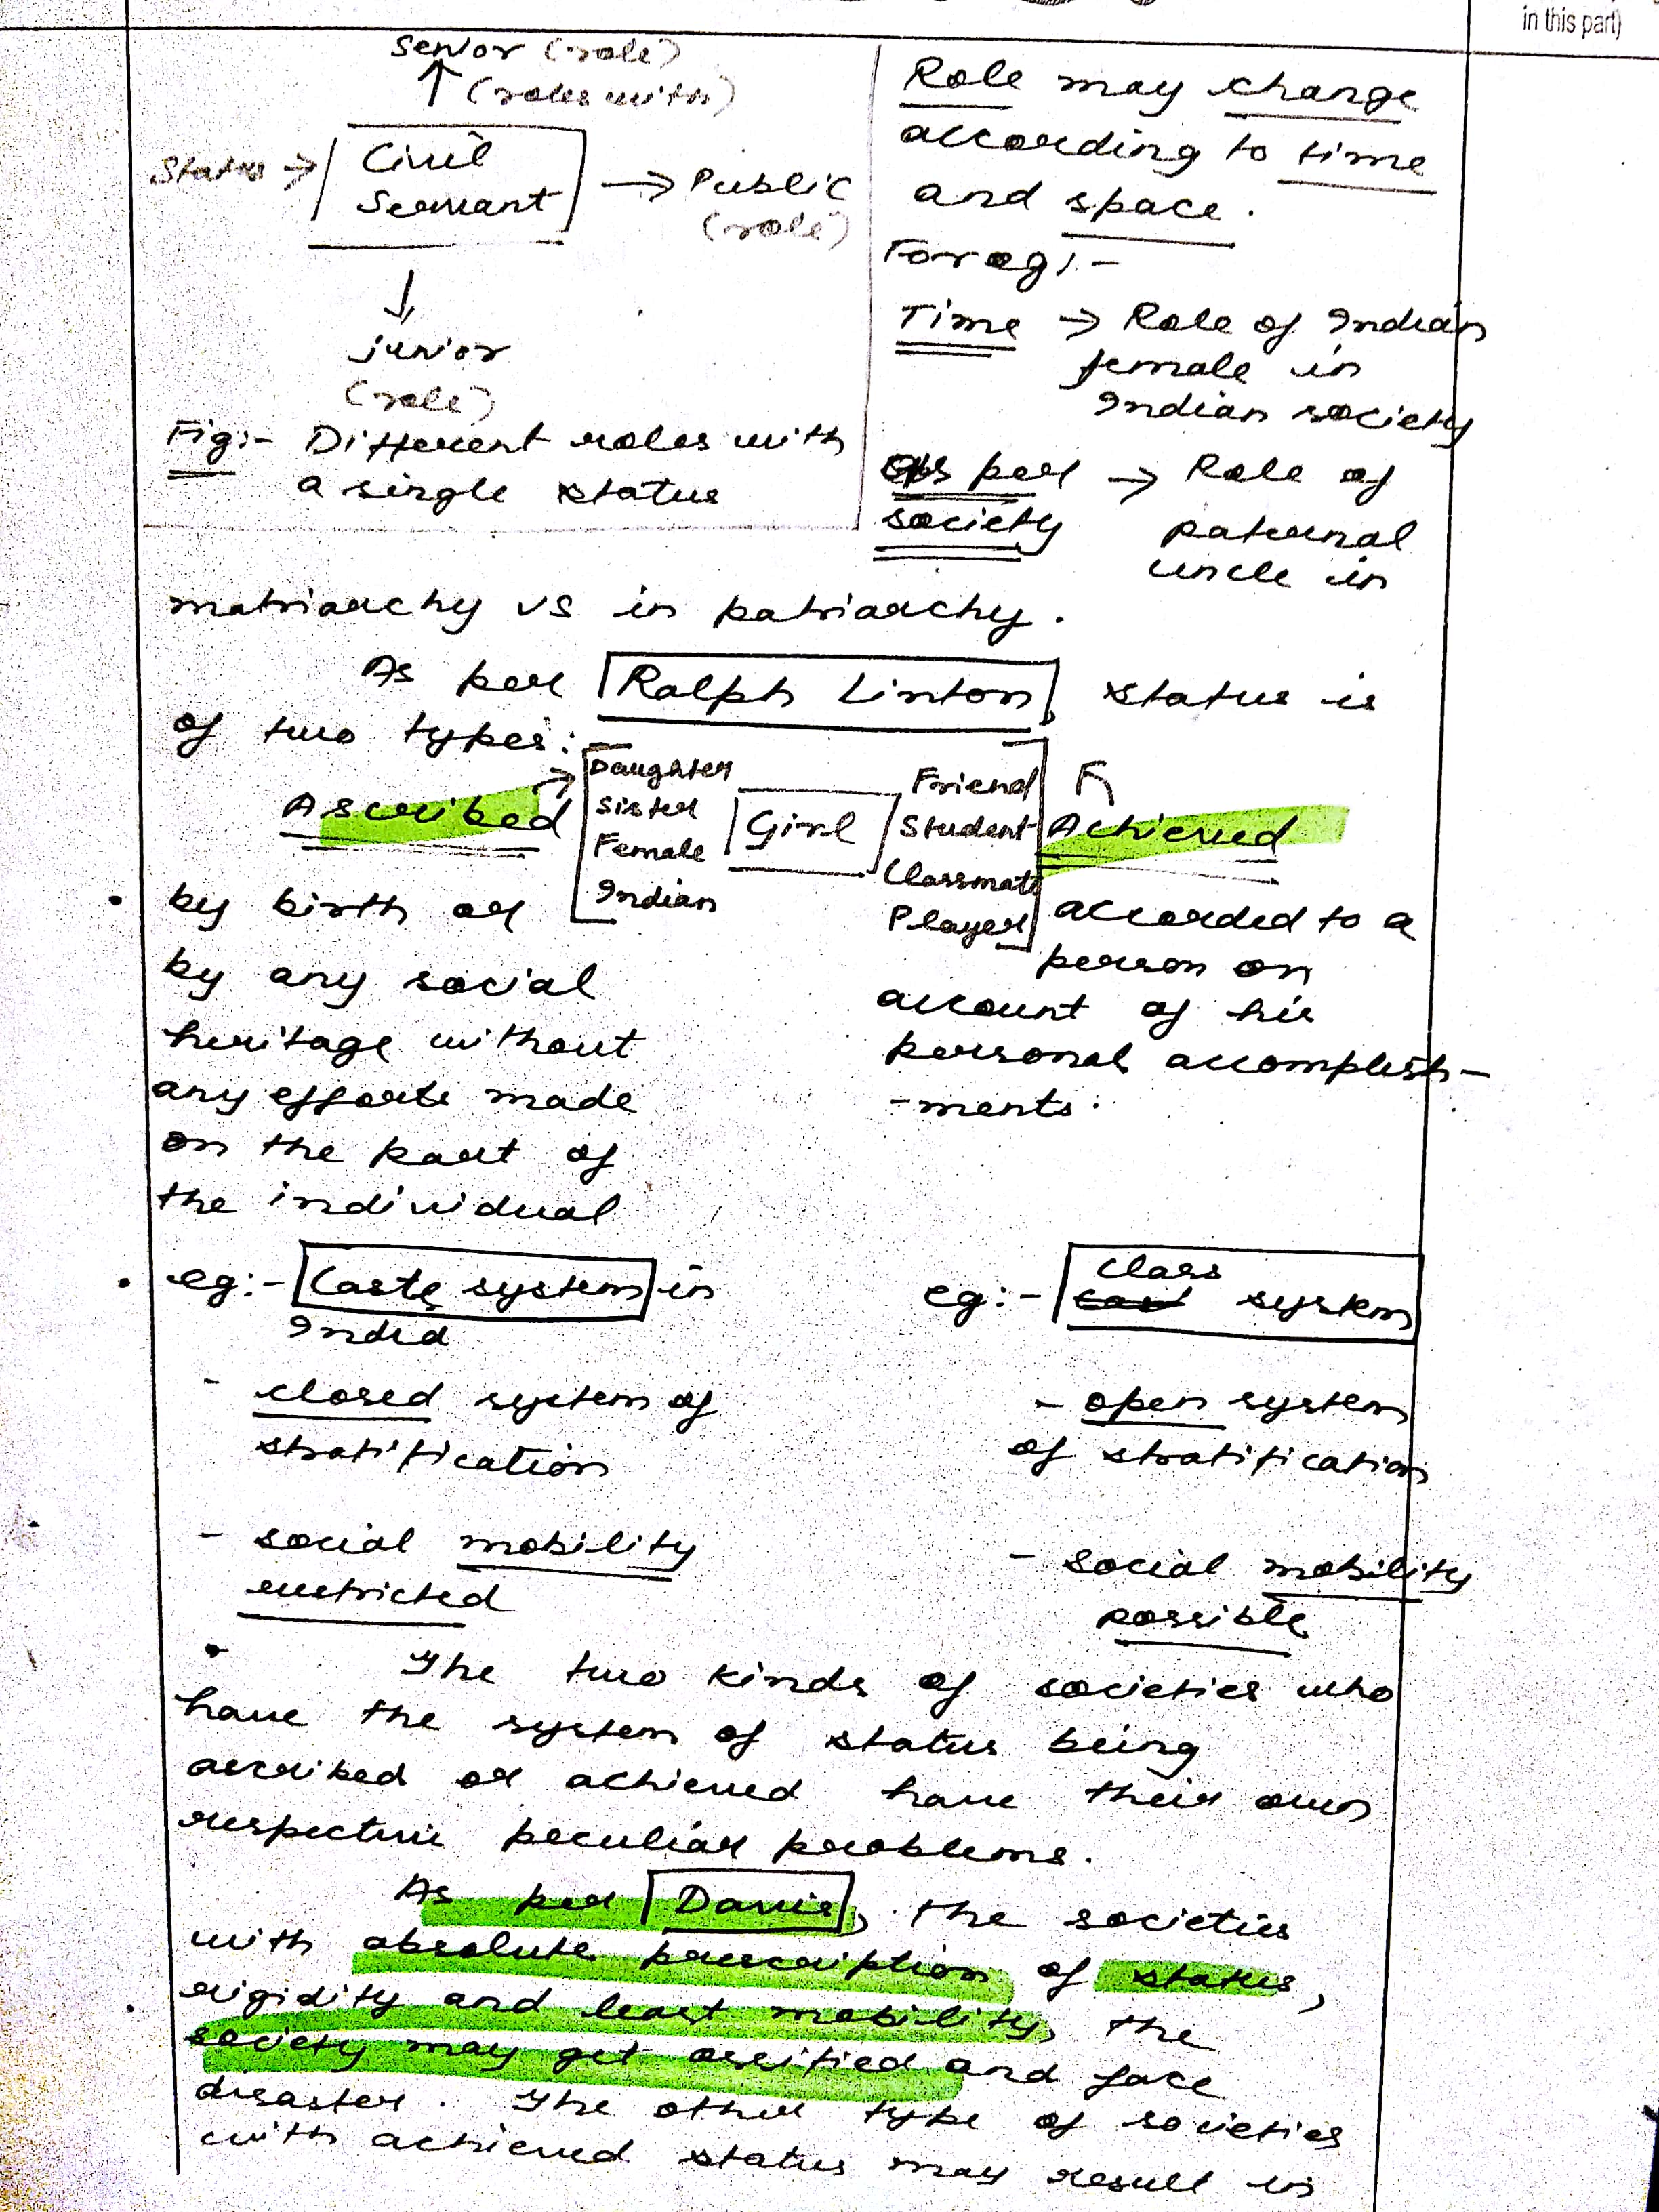 in this part)
Senior (role)
(roles with)
Status → Civil
Servant → Public
(role)
junior
(role)
Fig:- Different roles with
a single status
Role may change
according to time
and space.
For eg:-
Time → Role of Indian
female in
Indian society
As per → Role of
society paternal
uncle in
matriarchy vs in patriarchy.
As per Ralph Linton, status is
of two types:-
Ascribed
Daughter
Sister
Female
Indian
Girl
Friend
Student
Classmate
Player
Achieved
by birth or
by any social
heritage without
any efforts made
on the part of
the individual
accorded to a
person on
account of his
personal accomplish-
-ments.
eg:- Caste system in
India
- closed system of
stratification
- social mobility
restricted
eg:- class system
- open system
of stratification
- social mobility
possible
The two kinds of societies who
have the system of status being
ascribed or achieved have their own
respective peculiar problems.
As per Davis, the societies
with absolute prescription of status,
rigidity and least mobility, the
society may get ossified and face
disaster. The other type of societies
with achieved status may result in